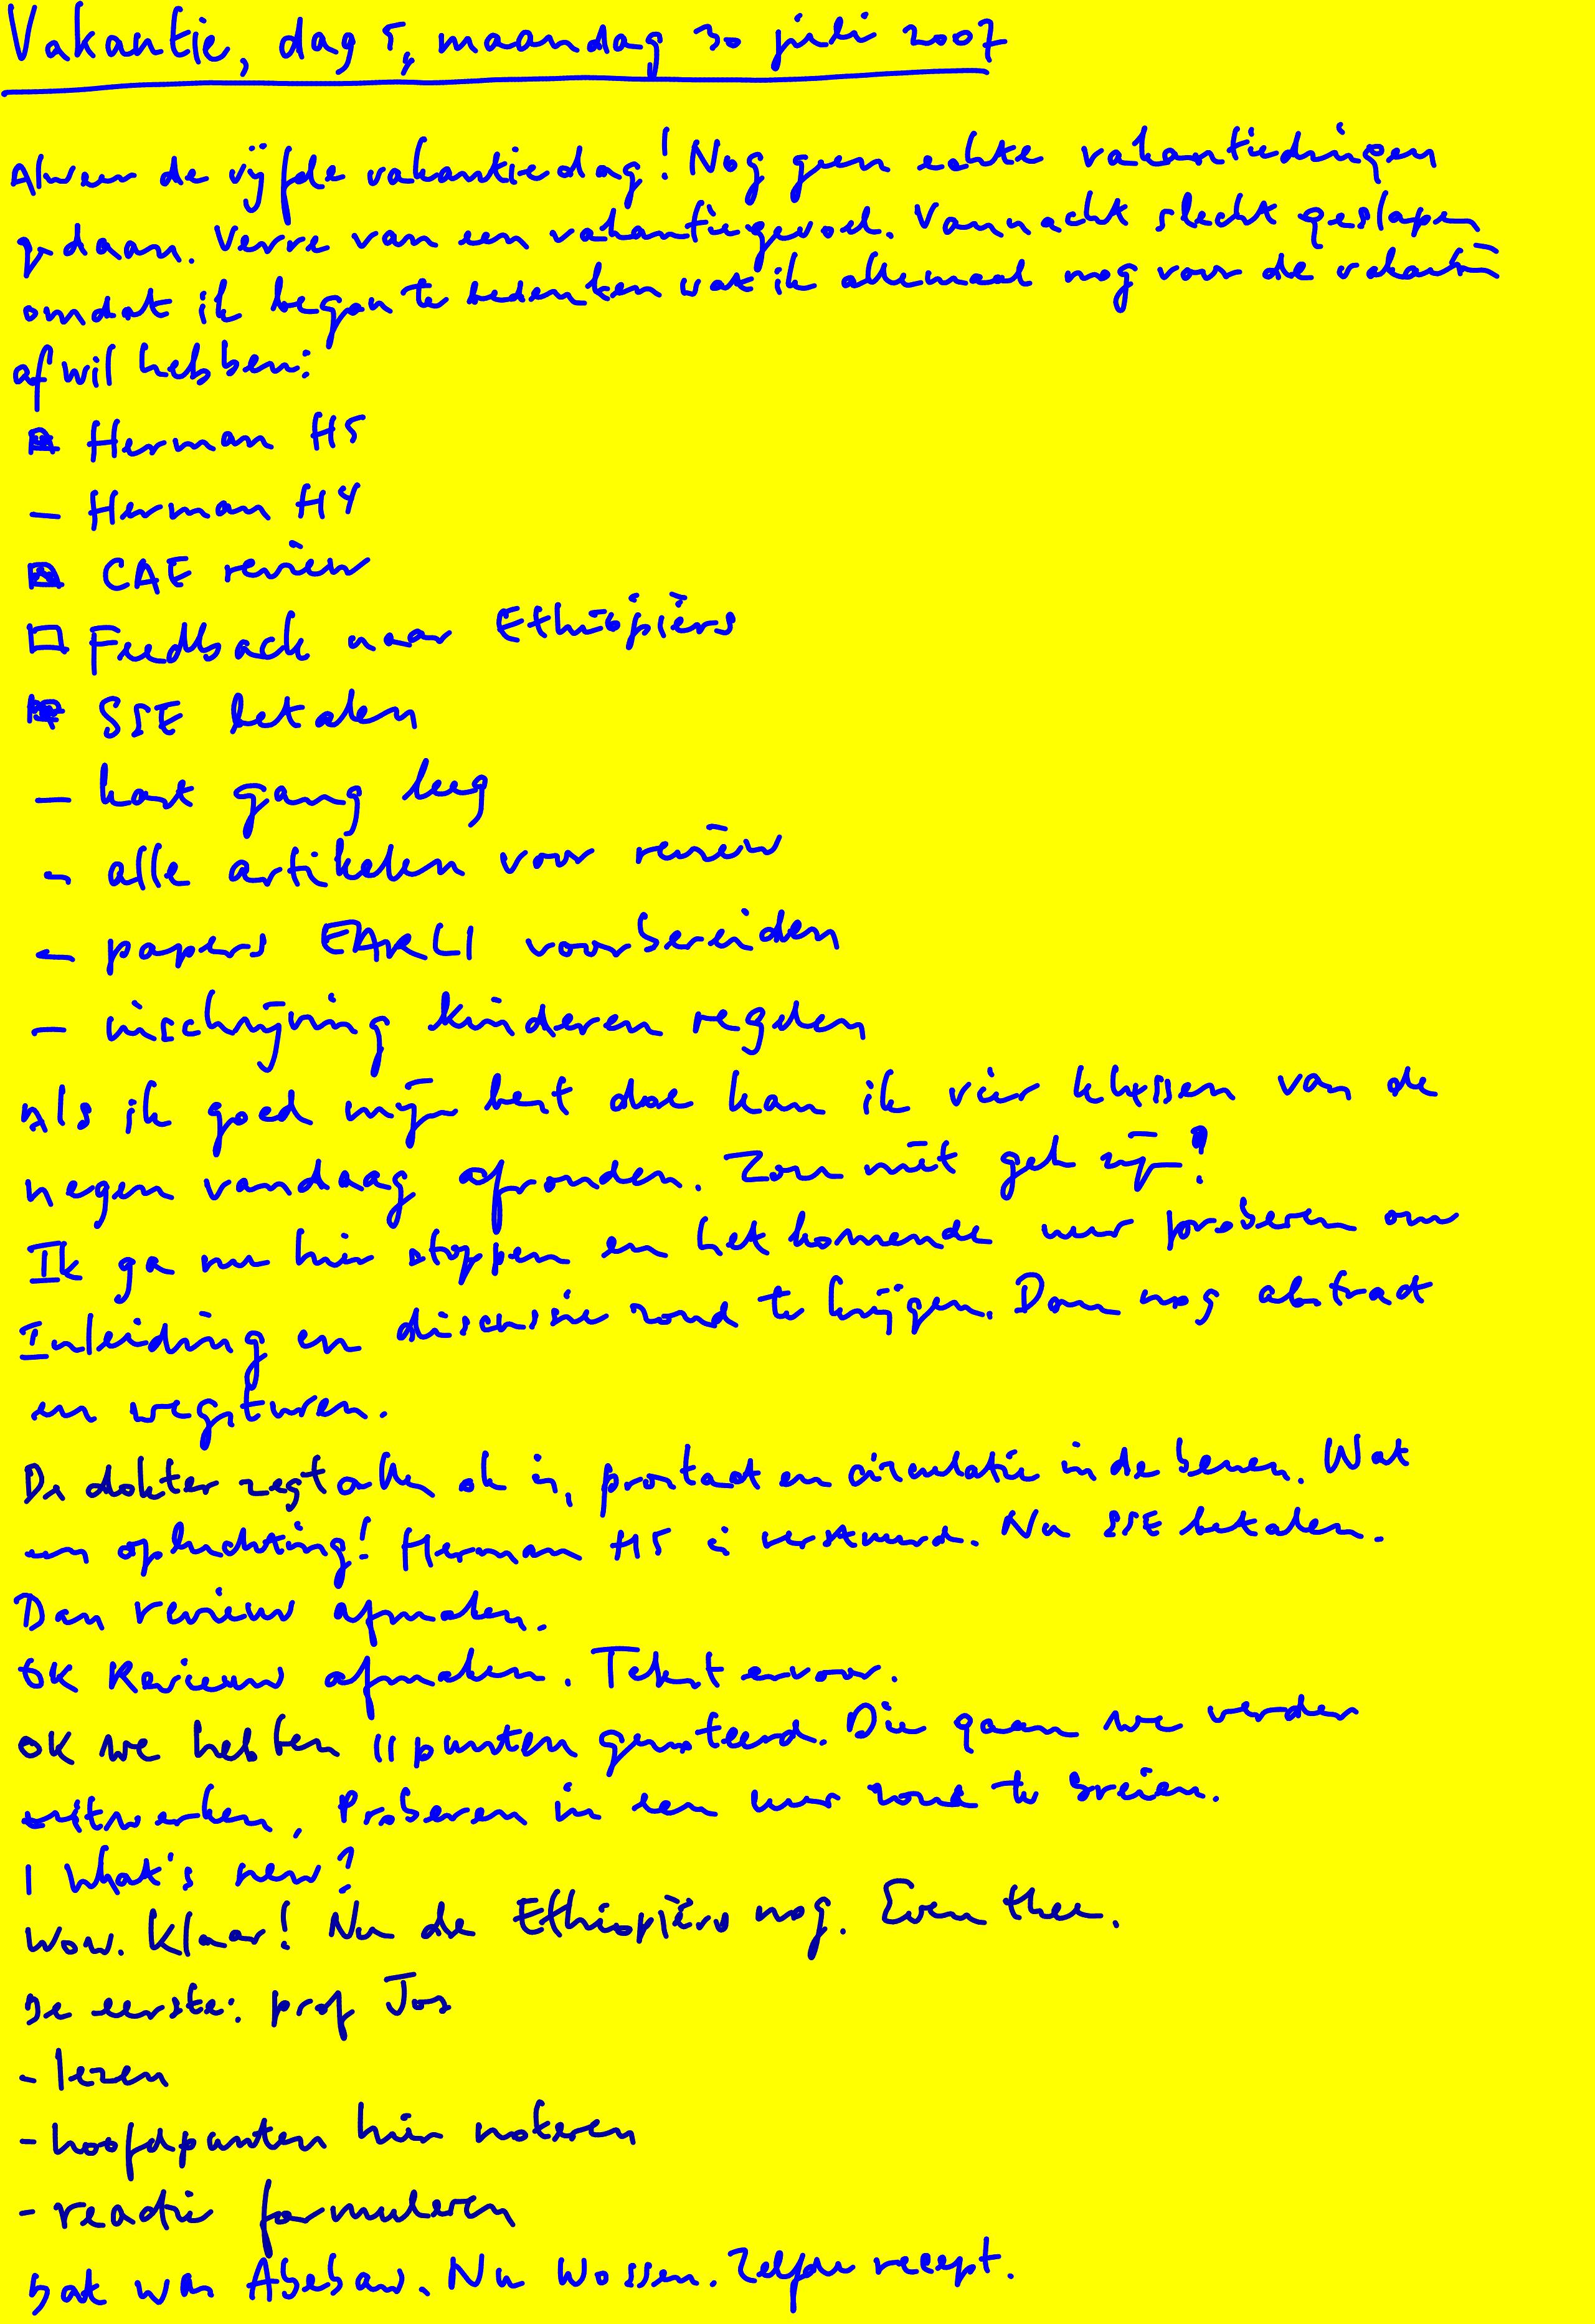 Vakantie, dag 5, maandag 30 juli 2007
Alweer de vijfde vakantiedag! Nog geen echte vakantiedingen
gedaan. Verre van een vakantiegevoel. Vannacht slecht geslapen
omdat ik began te bedenken wat ik allemaal nog voor de vakantie
af wil hebben:
Herman H5
- Herman H4
CAE review
□ Feedback naar Ethiopiërs
SSE betalen
- kast gang leeg
- alle artikelen voor review
- papers EARLI voorbereiden
- inschrijving kinderen regelen
Als ik goed mijn best doe kan ik vier klussen van de
negen vandaag afronden. Zou niet gek zijn!
Ik ga nu hier stoppen en het komende uur proberen om
Inleiding en discussie rond te krijgen. Dan nog abstract
en wegsturen.
De dokter zegt alles ok is, prostaat en circulatie in de benen. Wat
een opluchting! Herman H5 is verstuurd. Nu SSE betalen.
Dan review afmaken.
OK Review afmaken. Tekst ervoor.
OK we hebben 11 punten genoteerd. Die gaan we verder
uitwerken. Proberen in een uur rond te breien.
1 What's new?
Wow. Klaar! Nu de Ethiopiërs nog. Even thee.
De eerste: prof Jos
- lezen
- hoofdpunten hier noteren
- reactie formuleren
Dat was Abebaw. Nu Wossen. Zelfde recept.